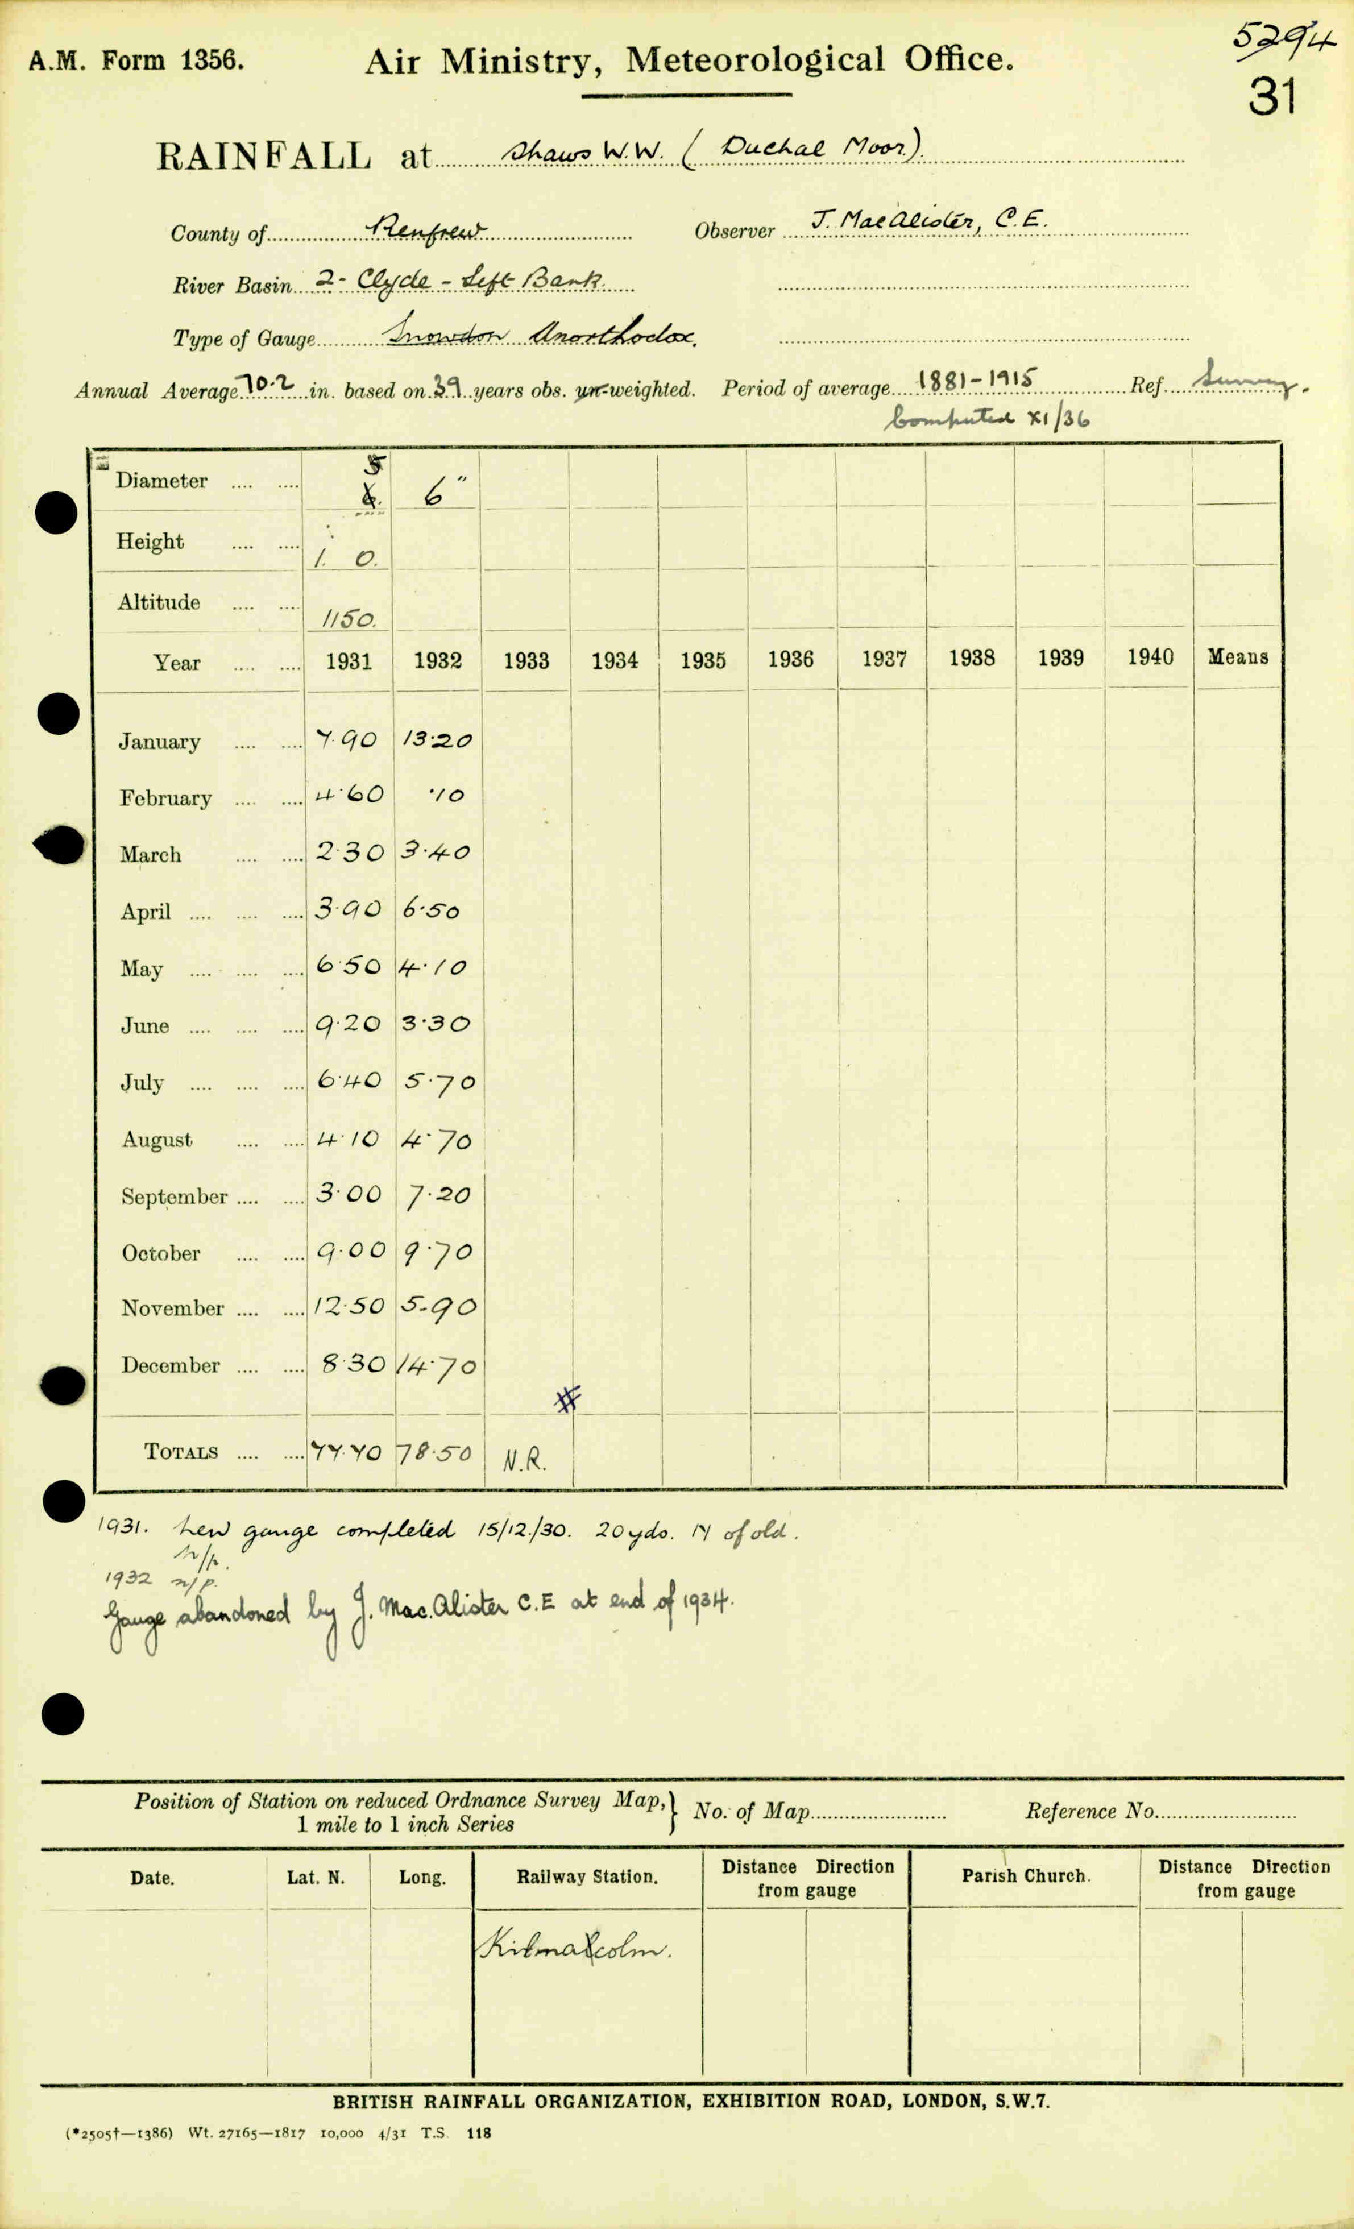 5294
A.M. Form 1356. Air Ministry, Meteorological Office.
31
RAINFALL at Shaws W.W. ( Duchal Moor).
County of Renfrew Observer J. MacAlister, C.E.
River Basin 2- Clyde - Left Bank
Type of Gauge Snowdon Unorthodox.
Annual Average 70.2 in. based on 39 years obs. un-weighted. Period of average 1881-1915 Ref. Survey.
Computed XI/36
Diameter .... .... 5 6. 6"
Height .... .... 1. 0.
Altitude .... .... 1150.
Year .... .... 1931 1932 1933 1934 1935 1936 1937 1938 1939 1940 Means
January .... .... 7.90 13.20
February .... .... 4.60 .10
March .... .... 2.30 3.40
April .... .... .... 3.90 6.50
May .... .... .... 6.50 4.10
June .... .... .... 9.20 3.30
July .... .... .... 6.40 5.70
August .... .... 4.10 4.70
September .... .... 3.00 7.20
October .... .... 9.00 9.70
November .... .... 12.50 5.90
December .... .... 8.30 14.70
#
TOTALS .... .... 77.70 78.50 N.R.
1931. New gauge completed 15/12/30. 20 yds. N of old.
n/p.
1932 n/p.
Gauge abandoned by J. Mac.Alister C.E at end of 1934.
Position of Station on reduced Ordnance Survey Map, } No. of Map Reference No.
1 mile to 1 inch Series
Date. Lat. N. Long. Railway Station. Distance Direction from gauge Parish Church. Distance Direction from gauge
Kilmalcolm.
BRITISH RAINFALL ORGANIZATION, EXHIBITION ROAD, LONDON, S.W.7.
(*2505†—1386) Wt. 27165—1817 10,000 4/31 T.S. 118